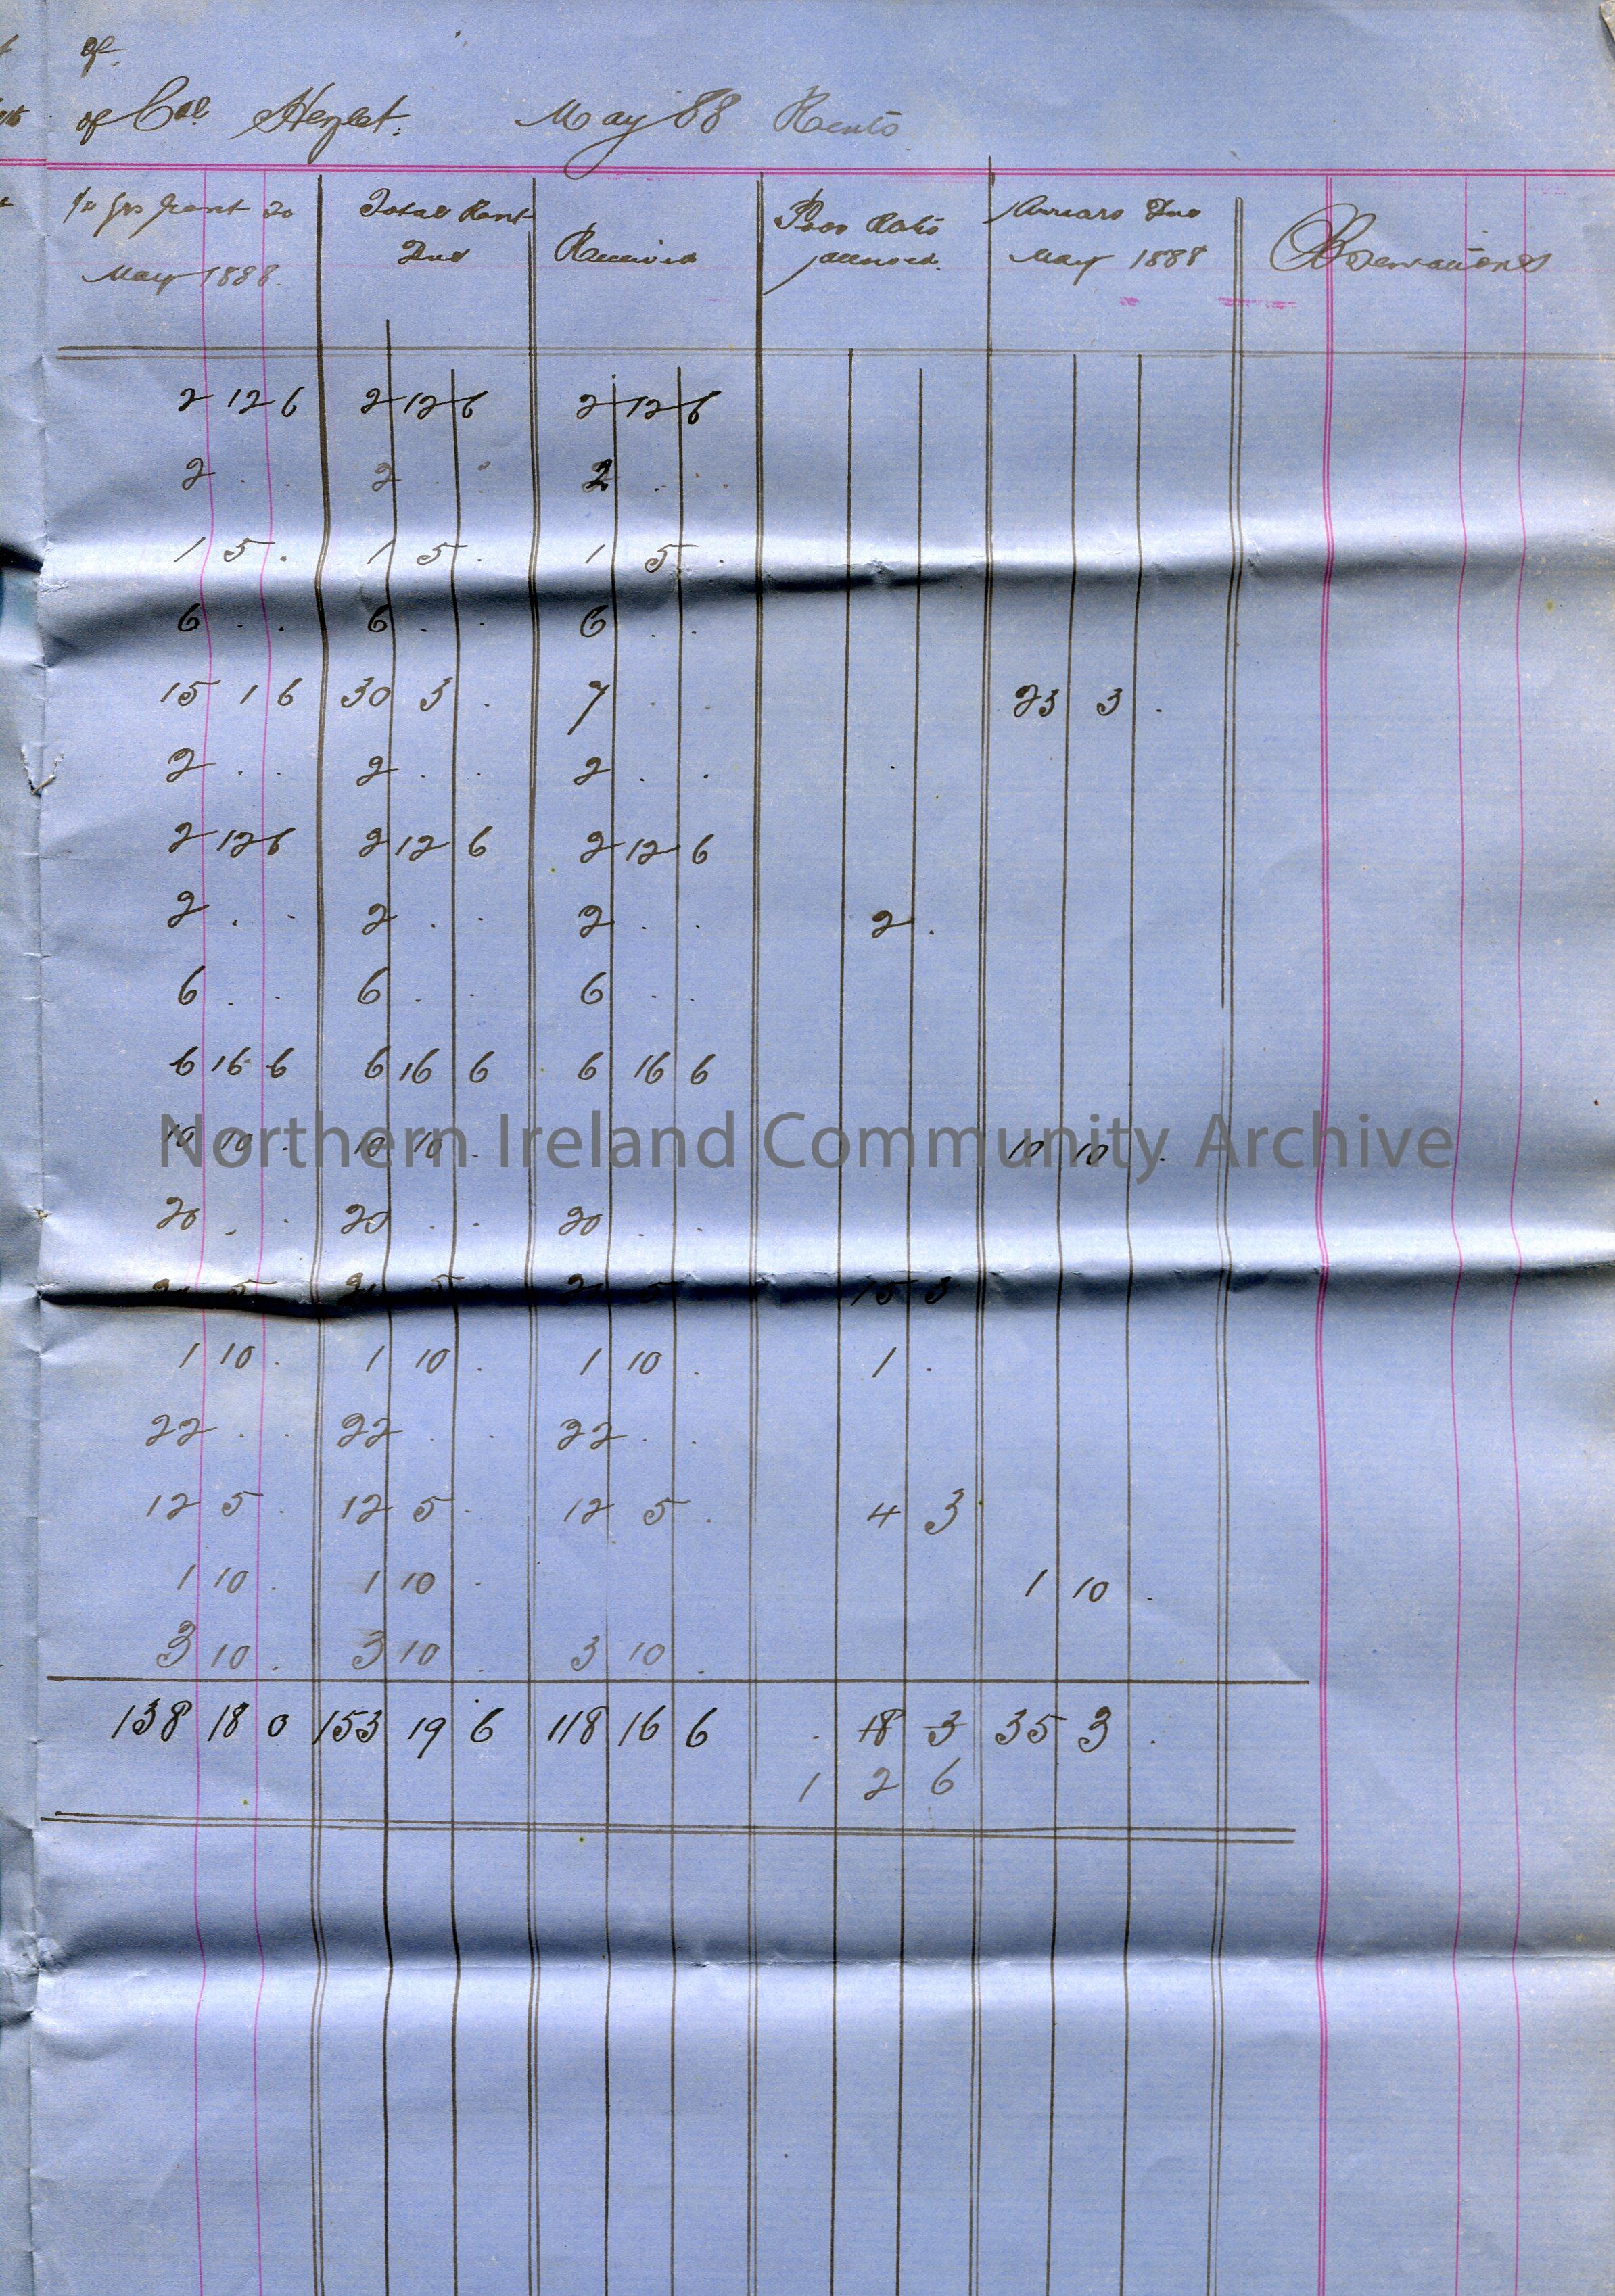 of
of Col Hezlet. May 88 Rents
1/2 yrs Rent to May 1888. Total Rent Due Received Poor Rate allowed. Arrears Due May 1888 Observations
2 12 6 2 12 6 2 12 6
2 . . 2 . . 2 . .
1 5 . 1 5 . 1 5 .
6 . . 6 . . 6 . .
15 1 6 30 3 . 7 . . 23 3 .
2 . . 2 . . 2 . .
2 12 6 2 12 6 2 12 6
2 . . 2 . . 2 . . 2 .
6 . . 6 . . 6 . .
6 16 6 6 16 6 6 16 6
10 10 . 10 10 . 10 10 .
20 . . 20 . . 20 . .
21 5 21 5 21 5 15 3
1 10 . 1 10 . 1 10 . 1 .
22 . . 22 . . 22 . .
12 5 . 12 5 . 12 5 . 4 3
1 10 . 1 10 . 1 10 .
3 10 . 3 10 . 3 10 .
138 18 0 153 19 6 118 16 6 . 18 3 35 3 .
1 2 6
Northern Ireland Community Archive